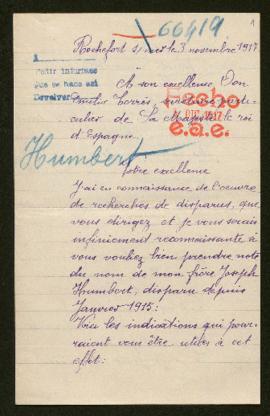 66419
1
Rochefort s/ mer le 3 novembre 1917
A
Pedir informes
Que se haga asi
Devolver
A son excellence Don
Emilio Torres, secrétaire parti-
culier de Sa Majesté le roi
d'Espagne.
Fecho
DIC. 1917
e.a.e.
Humbert
Votre excellence
J'ai eu connaissance de l'oeuvre
de recherches de disparus, que
vous dirigez et je vous serais
infiniment reconnaissante, si
vous vouliez bien prendre note
du nom de mon frère Joseph
Humbert, disparu depuis
Janvier 1915:
Voici les indications qui pour-
raient vous être utiles à cet
effet: